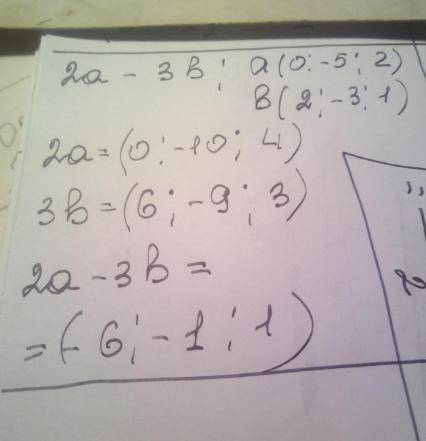 2a - 3b; a(0; -5; 2)
B(2; -3; 1)
2a = (0; -10; 4)
3b = (6; -9; 3)
2a - 3b =
= (-6; -1; 1)